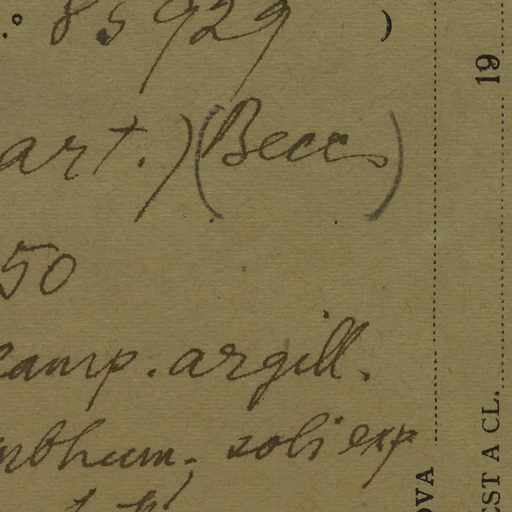 .° 85929 )
art.) (Becc)
50
camp. argill.
mbhum. soli exp
19
EST A CL.
OVA